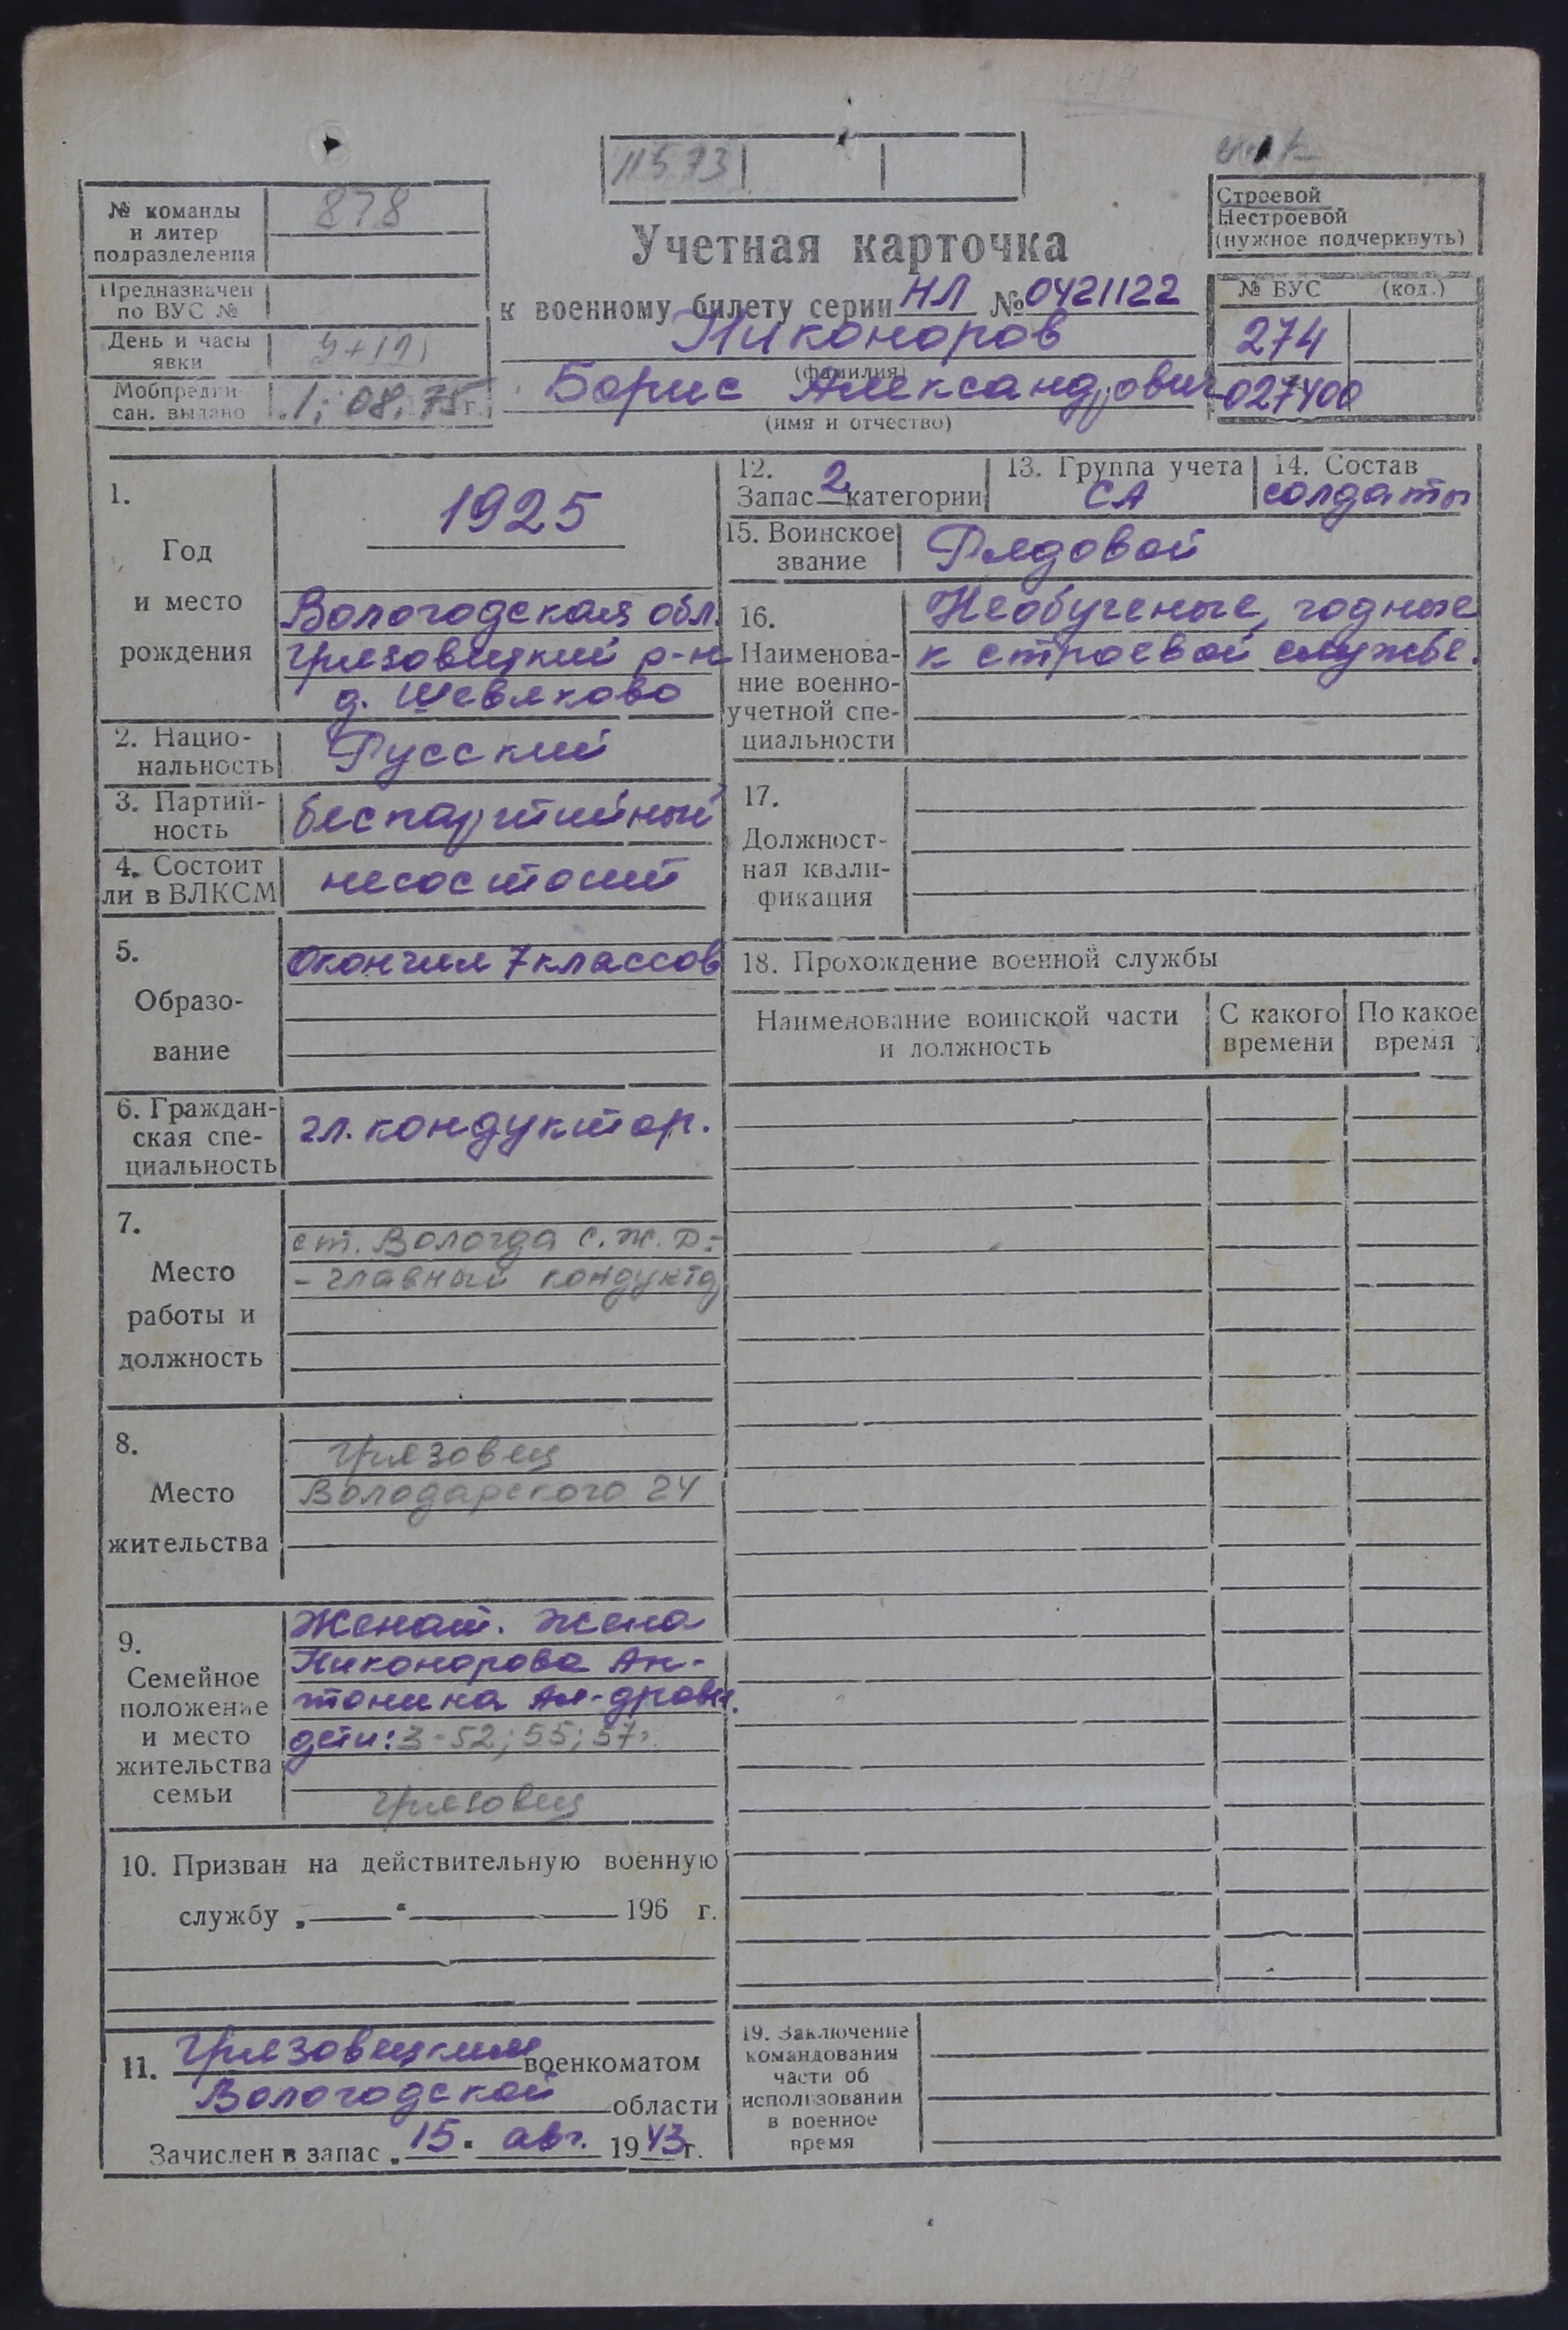 11573
№ команды
и литер
подразделения
878
Предназначен
по ВУС №
День и часы
явки
Мобпредпи-
сан. выдано
1; 08. 75 г.
Учетная карточка
к военному билету серии НЛ № 0421122
Никоноров
(фамилия)
Борис Александрович
(имя и отчество)
Строевой
Нестроевой
(нужное подчеркнуть)
№ ВУС (код.)
274
027400
1.
Год
и место
рождения
1925
Вологодская обл.
Грязовецкий р-н
д. Шевяково
2. Нацио-
нальность
Русский
3. Партий-
ность
беспартийный
4. Состоит
ли в ВЛКСМ
несостоит
5.
Образо-
вание
Окончил 7 классов
6. Граждан-
ская спе-
циальность
гл. кондуктор.
7.
Место
работы и
должность
ст. Вологда С.Ж.Д.-
- главный кондукто
8.
Место
жительства
Грязовец
Володарского 24
9.
Семейное
положение
и место
жительства
семьи
Женат. Жена
Никонорова Ан-
тонина Ал-дровн.
дети: 3-52; 55; 57г.
Грязовец
10. Призван на действительную военную
службу „ “ 196 г.
11. Грязовецким военкоматом
Вологодской области
Зачислен в запас „15“ авг. 1943 г.
12.
Запас 2 категории
13. Группа учета
СА
14. Состав
солдаты
15. Воинское
звание
Рядовой
16.
Наименова-
ние военно-
учетной спе-
циальности
Необученые, годные
к строевой службе.
17.
Должност-
ная квали-
фикация
18. Прохождение военной службы
Наименование воинской части
и должность
С какого
времени
По какое
время
19. Заключение
командования
части об
использовании
в военное
время